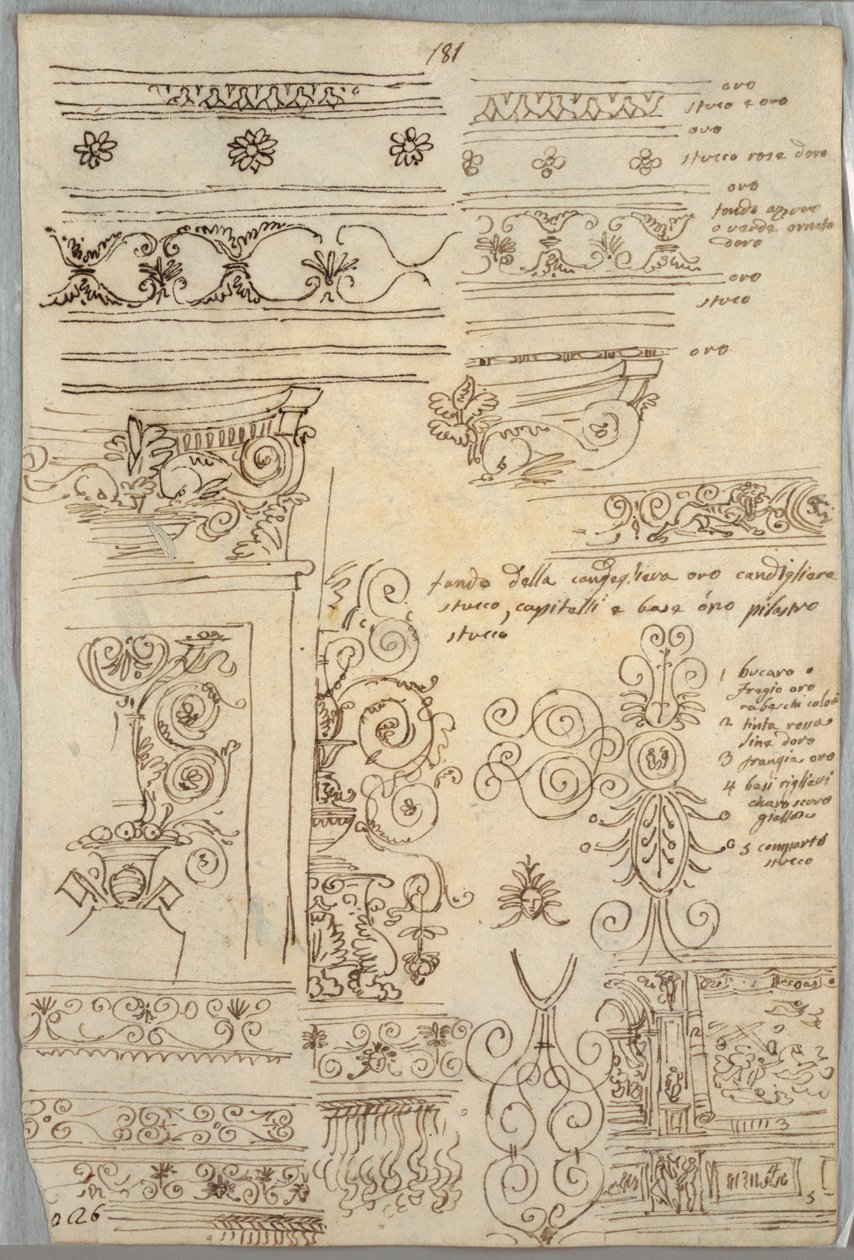 181
oro
stuco e oro
oro
stucco rose doro
oro
fondo azuro
o verde ornato
doro
oro
stuco
oro
fondo della candegliera oro candigliere
stucco, capitelli e base oro pilastro
stucco
1 bucaro o
fregio oro
rabeschi
2 tinta rossa
line doro
3 frangia oro
4 basi riglievi
charo scuro
giallo
5 comparto
stucco
2
3
4
5